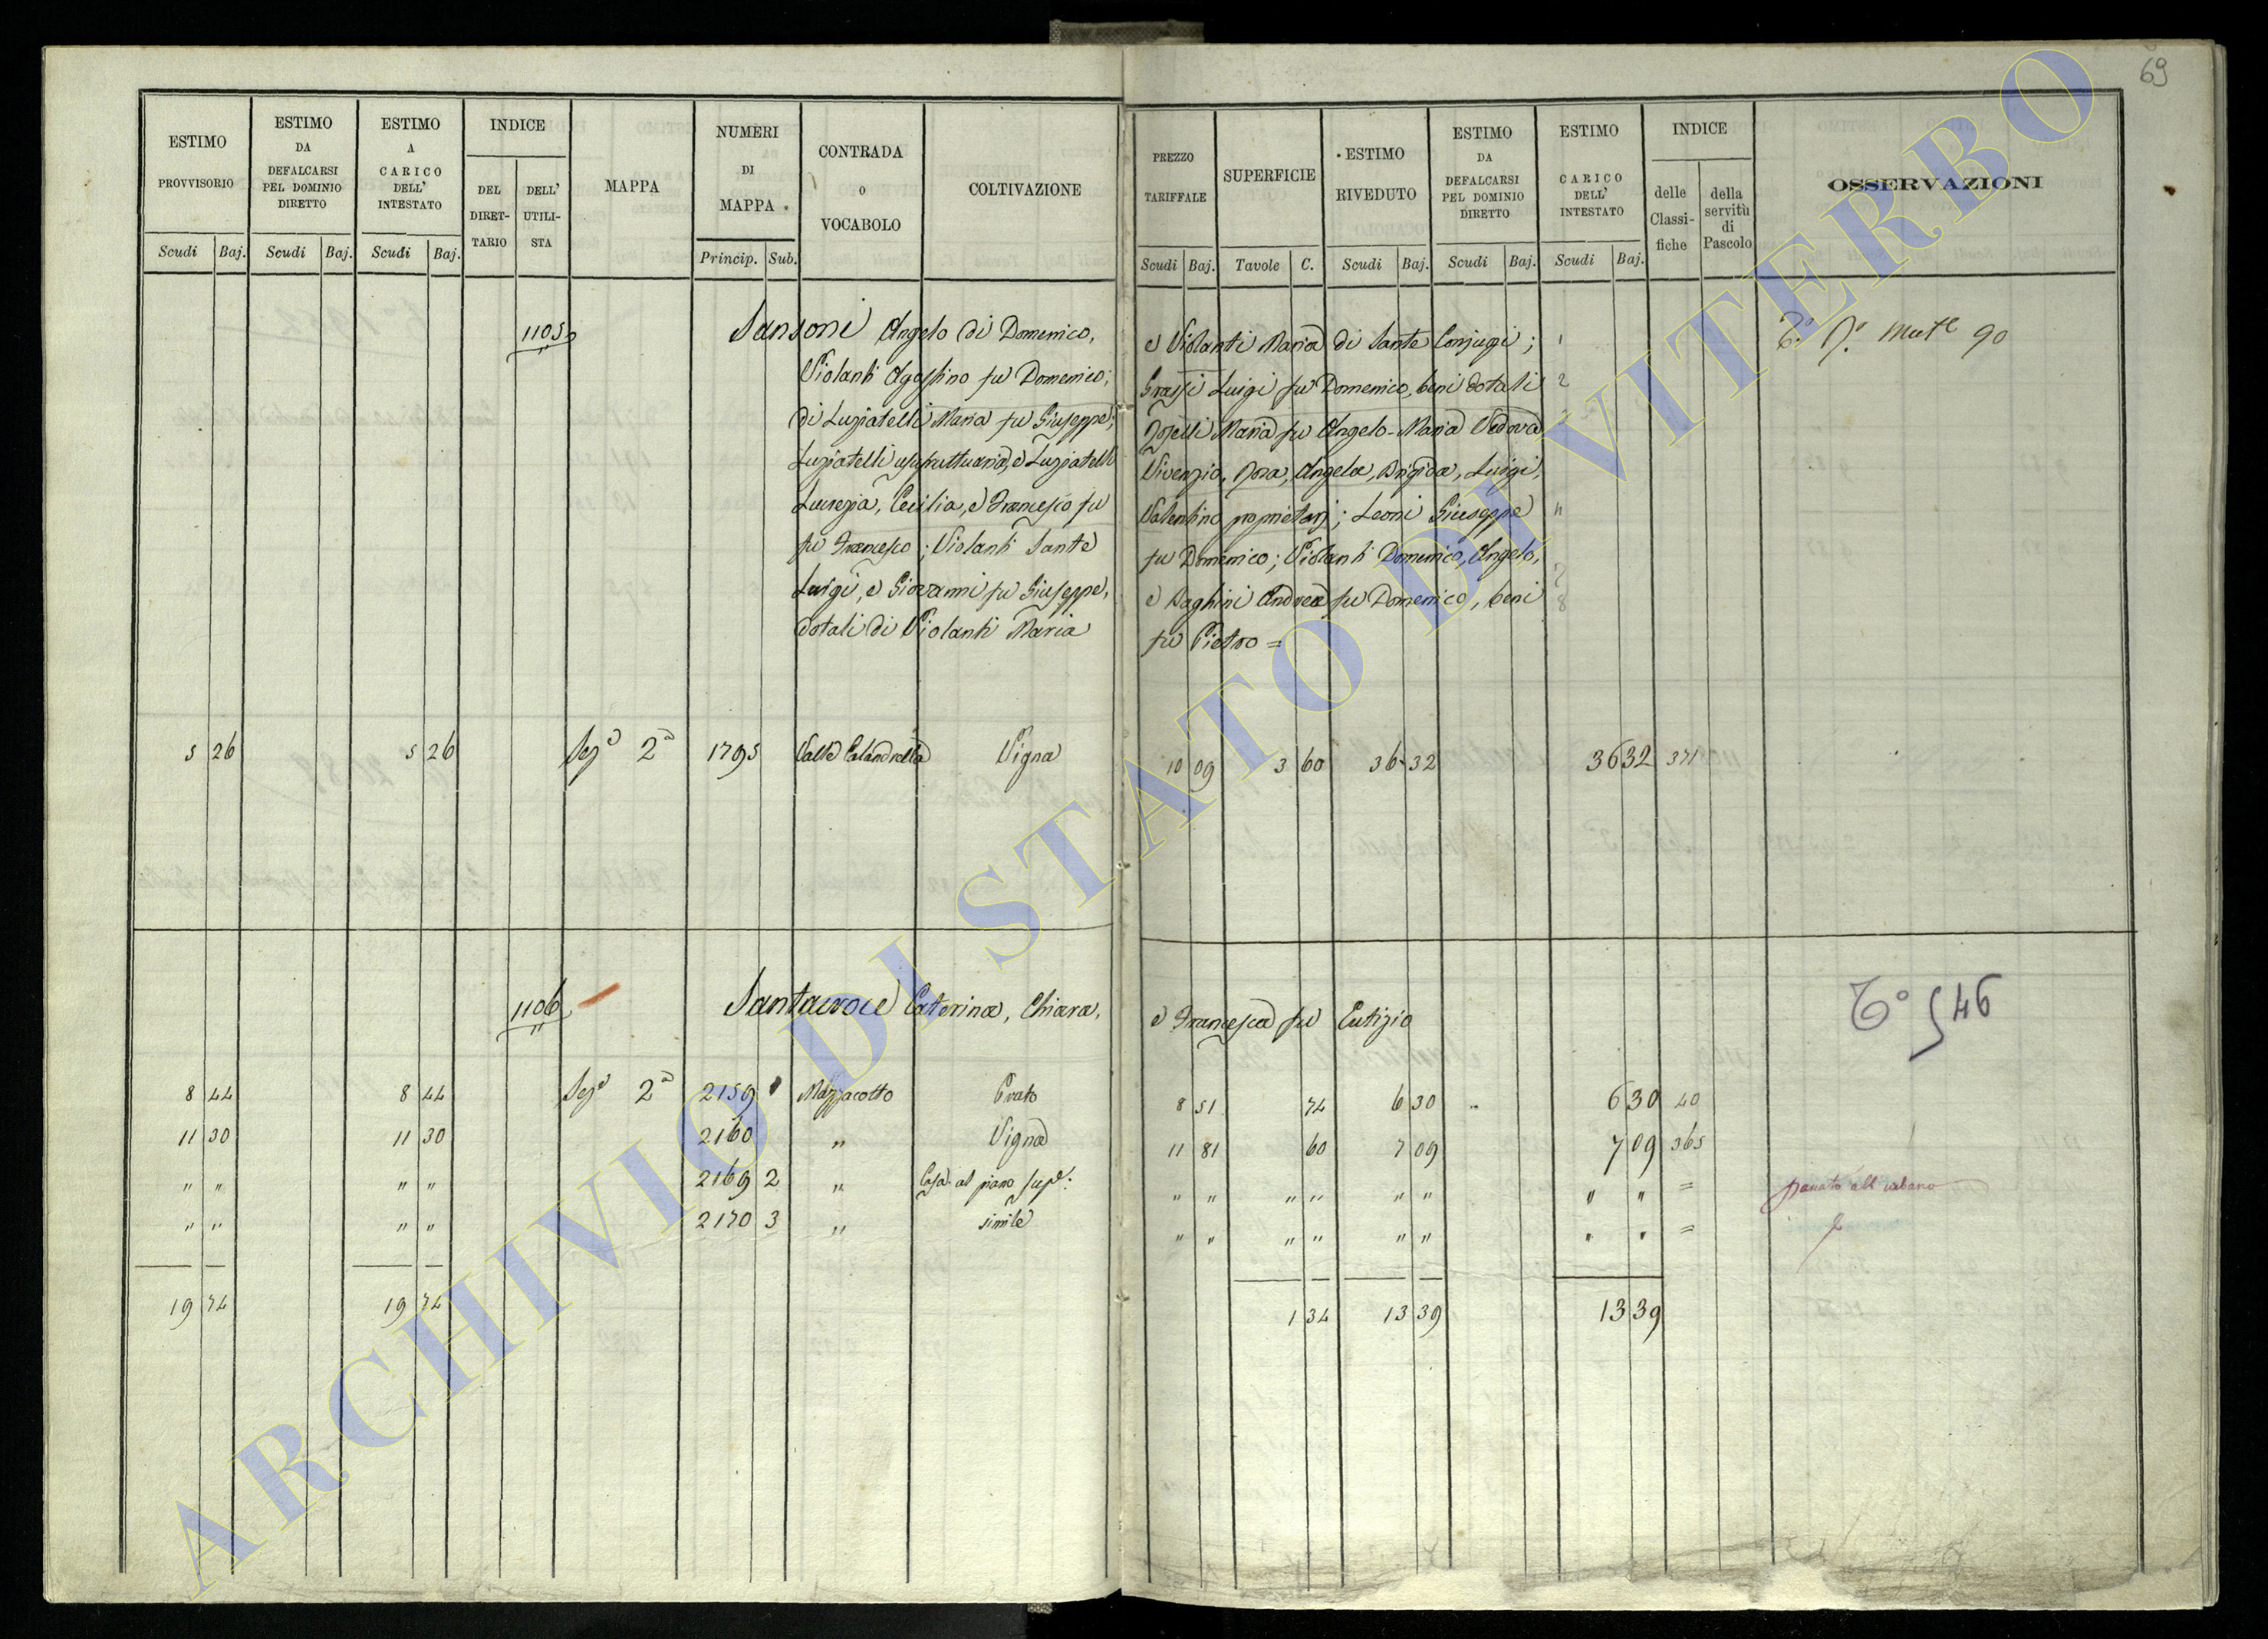 69
ESTIMO PROVVISORIO Scudi Baj.
ESTIMO DA DEFALCARSI PEL DOMINIO DIRETTO Scudi Baj.
ESTIMO A CARICO DELL' INTESTATO Scudi Baj.
INDICE DEL DIRETTARIO DELL' UTILISTA
MAPPA
NUMERI DI MAPPA Princip. Sub.
CONTRADA O VOCABOLO
COLTIVAZIONE
PREZZO TARIFFALE Scudi Baj.
SUPERFICIE Tavole C.
ESTIMO RIVEDUTO Scudi Baj.
ESTIMO DA DEFALCARSI PEL DOMINIO DIRETTO Scudi Baj.
ESTIMO A CARICO DELL' INTESTATO Scudi Baj.
INDICE delle Classifiche della servitù di Pascolo
OSSERVAZIONI
1105 Sansoni Angelo di Domenico, e Violanti Maria di Sante Conjugi; 1
Violanti Agostino fu Domenico; Grassi Luigi fu Domenico, beni dotali 2
di Luziatelli Maria fu Giuseppe; Roselli Maria fu Angelo-Maria Vedova
Luziatelli usufruttuaria, e Luziatelli Vivenzio, Rosa, Angela, Brigida, Luigi,
Lucrezia, Cecilia, e Francesco fu Valentino proprietarj; Leoni Giuseppe
fu Francesco; Violanti Sante fu Domenico; Violanti Domenico, Angelo,
Luigi, e Giovanni fu Giuseppe, e Paghini Andrea fu Domenico, beni 8
dotali di Violanti Maria fu Pietro =
Mute 90
5 26 5 26 Seze 2a 1795 Valle Calandrella Vigna 10 09 3 60 36 32 36 32 371
1106 Santacroce Caterina, Chiara, e Francesca fu Eutizio
To 546
8 44 8 44 Seze 2a 2159 Mazzacotto Prato 8 51 74 6 30 „ 6 30 40
11 30 11 30 2160 „ Vigna 11 81 60 7 09 7 09 365
„ „ „ „ 2169 2 „ Casa al piano supe: „ „ „ „ „ „ „ „ = passato all urbano
„ „ „ „ 2170 3 „ simile „ „ „ „ „ „ „ „ =
19 74 19 74 1 34 13 39 13 39
ARCHIVIO DI STATO DI VITERBO